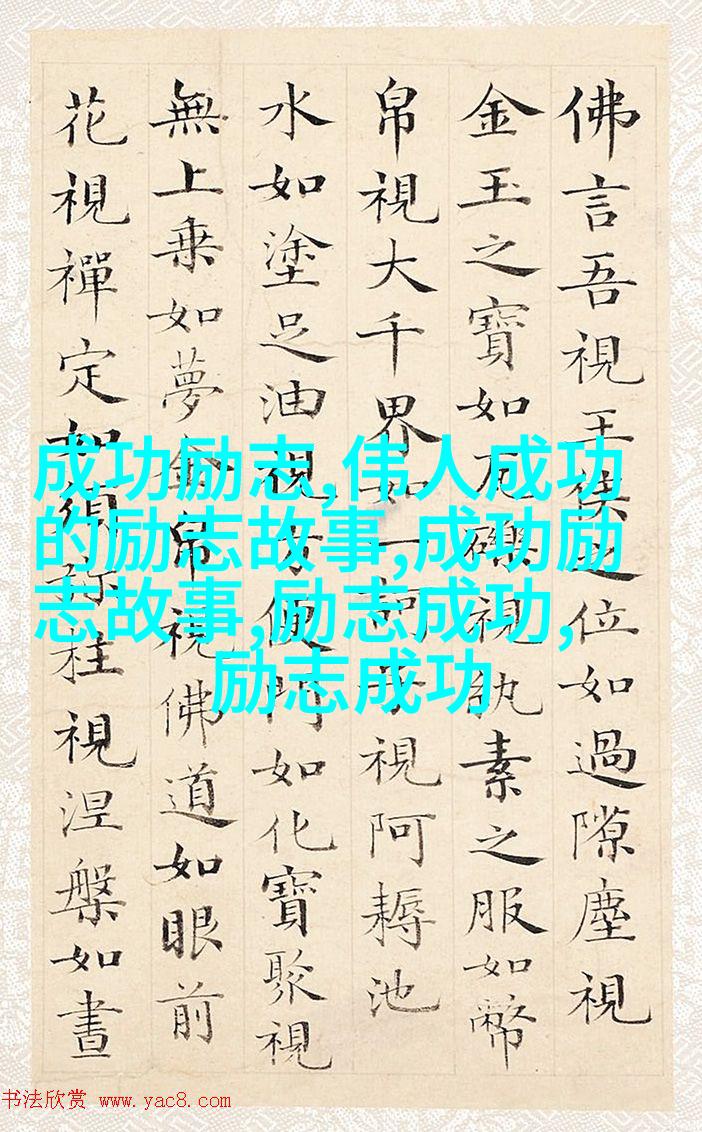 佛言吾視王侯之位如過隙塵視
金玉之寶如瓦礫視紈素之服如幣
帛視大千界如一訶子視阿耨池
水如塗足油視方便門如化寶聚視
無上乗如夢金帛視佛道如眼前
花視禪定如須弥柱視涅槃如晝
成功励志,伟人成功
的励志故事,成功励
志故事,励志成功,
励志成功
书法欣赏 www.yac8.com